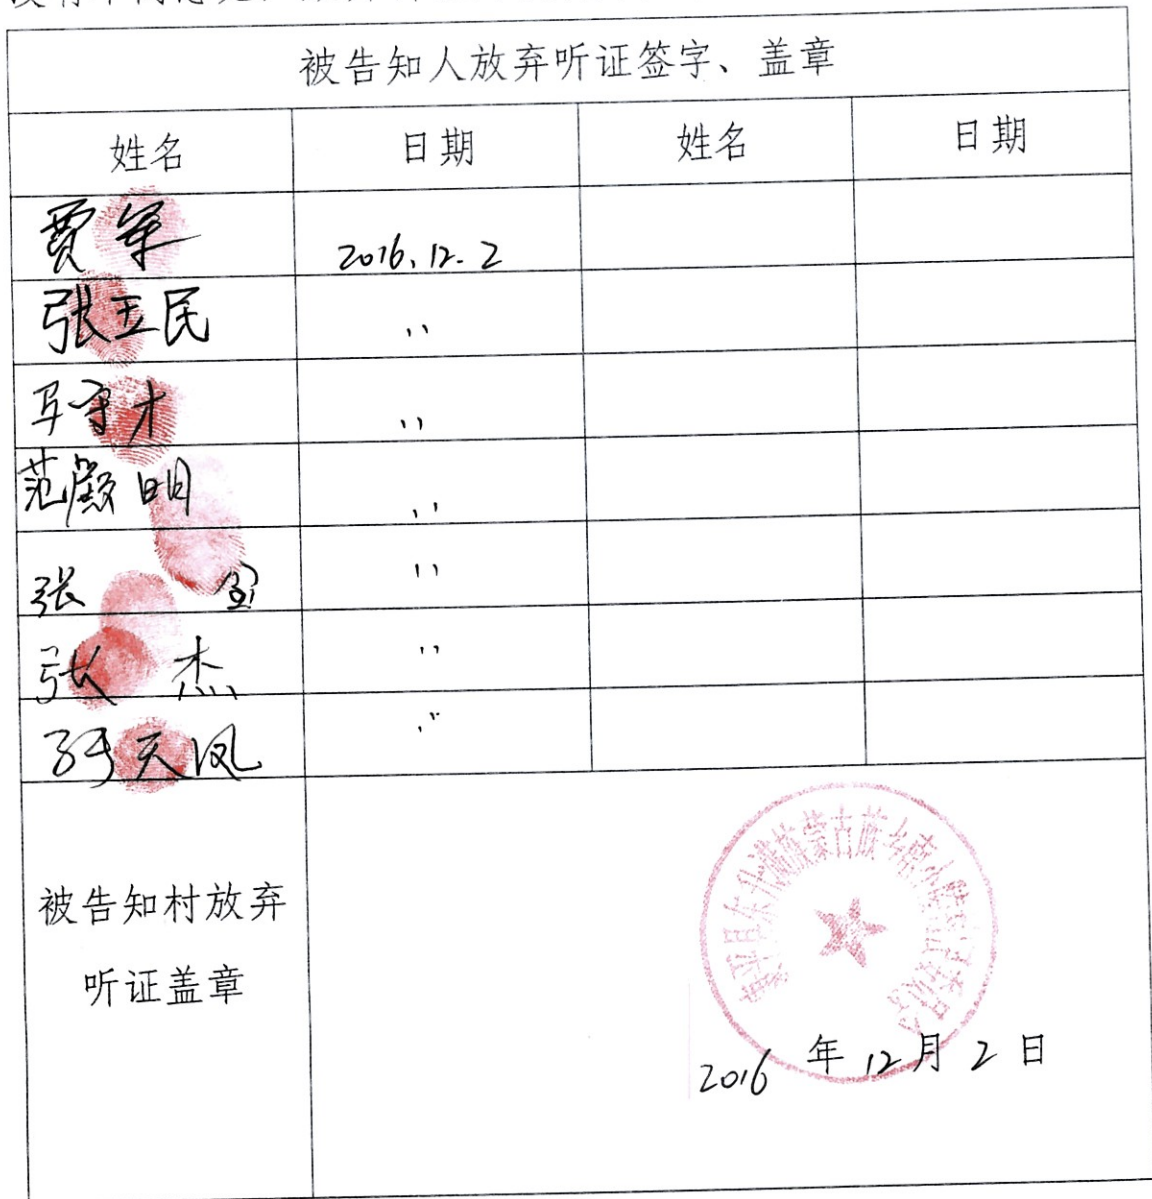 被告知人放弃听证签字、盖章
姓名 日期 姓名 日期
贾军 2016.12.2
张玉民 ,,
马守才 ,,
范殿明 ,,
张 ,,
张杰 ,,
天凤 ,,
蒙古族乡
被告知村放弃
听证盖章
2016年12月2日